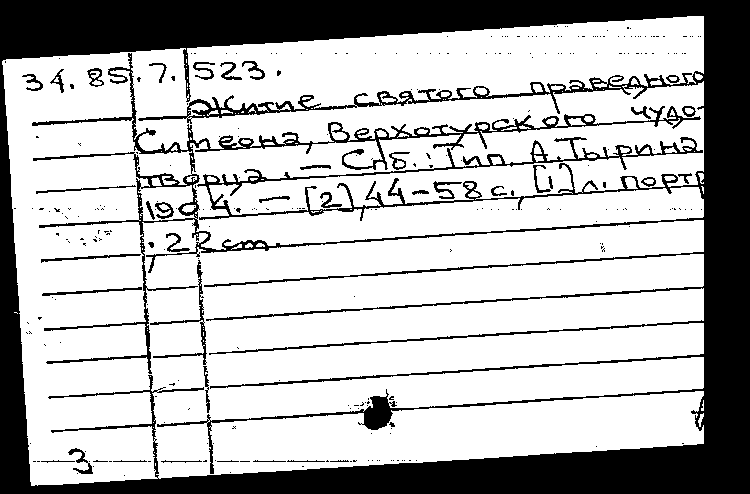 34.85.7.523.
Житие святого праведного
Симеона, Верхотурского чудо-
творца. — Спб.: Тип. А. Тырина
1904. — [2], 44-58 с., [1] л. портр
; 22 cm.
3